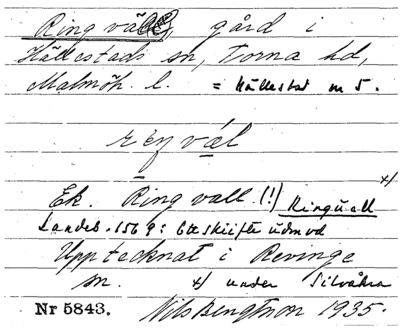 Ringväl, gård i
Hällestads sn, Torna hd,
Malmöh. l. = Hällestad nr 5.
riŋvàl
x)
Ek. Ringvall (!) Ringuall
Landeb. 1569:
Upptecknat i Revinge
sn. x) under Silvåkra
Nr 5843. Nils Bengtsson 1935.